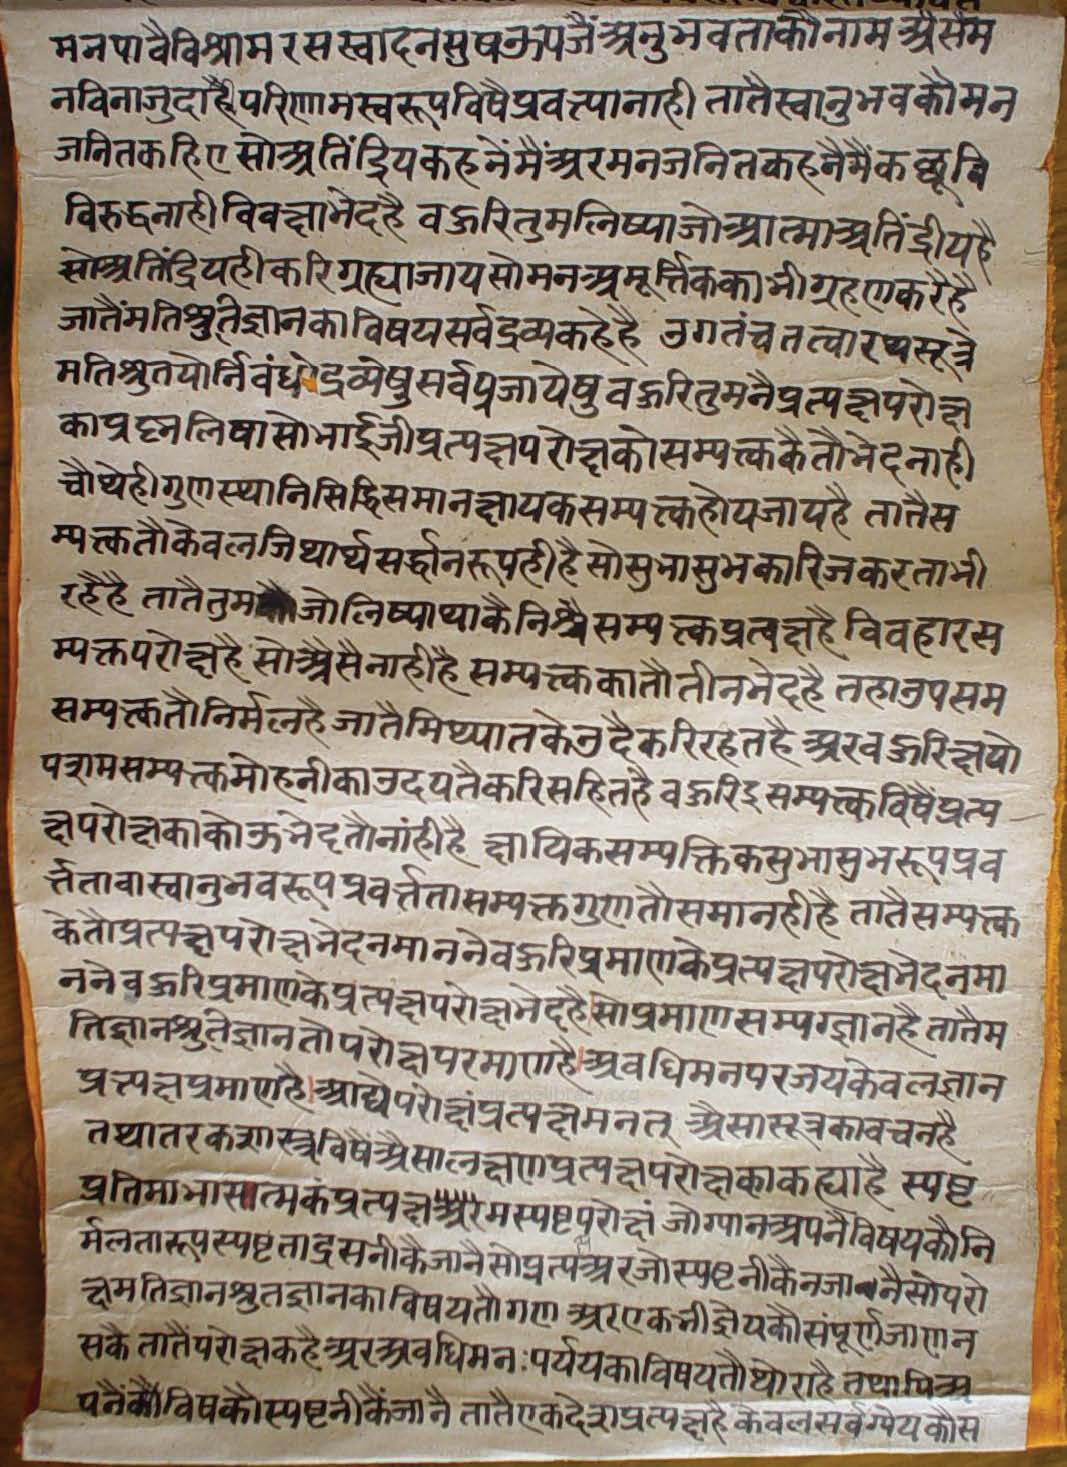 मनपावैविश्रामरसस्वादनसुषऊपजैंअनुभवताकौनामअैसैम
नविनाजुदाहीपरिणामस्वरूपविषैप्रवर्त्यानाही तातैस्वानुभवकौमन
जनितकहिए सोअतिंद्रियकहनेंमैंअरमनजनितकहनैमैंकछूवि
विरुद्धनाहीविवक्षाभेदहै वऊरितुमलिष्याजोआत्माअतिंद्रीयहै
सोअतिंद्रियहीकरिग्रह्याजायसोमनअमूर्त्तिककाभीग्रहणकरैहै
जातैंमतिश्रुतज्ञानकाविषयसर्वद्रव्यकहैहै उगतंचतत्वारथसूत्रे
मतिश्रुतयोर्निवंधोद्रव्येषुसर्वप्रजायेषुवऊरितुमनैप्रत्यक्षपरोक्ष
काप्रष्नलिषासोभाईजीप्रत्यक्षपरोक्षकोसम्यक्तकैतौभेदनाही
चौथेहीगुणस्थानिसिद्धिसमानक्षायकसम्यक्तहोयजायहै तातैस
म्यक्ततौकेवलजिथार्थसर्द्धानरूपहीहै सोसुभासुभकारिजकरताभी
रहैहै तातैतुम जोलिष्याथाकैनिश्चैसम्यक्तप्रत्यक्षहै विवहारस
म्यक्तपरोक्षहै सोअैसैनाहीहै सम्यक्तकातौतीनभेदहै तहाउपसम
सम्यक्ततौनिर्मलहै जातैमिथ्यातकेउदैकरिरहेतहै अरवऊरिक्षयो
पशमसम्यक्तमोहनीकाउदयतैकरिसहितहै वऊरिइसम्यक्तविषैंप्रत्य
क्षपरोक्षकाकोऊभेदतौनांहीहै क्षायिकसम्यक्तिकसुभासुभरूपप्रव
र्त्ततावास्वानुभवरूपप्रवर्त्ततासम्यक्तगुणतौसमानहीहै तातैसम्यक्त
केतौप्रत्यक्षपरोक्षभेदनमाननेवऊरिप्रमाणकेप्रत्यक्षपरोक्षभेदनमा
ननेवऊरिप्रमाणकेप्रत्यक्षपरोक्षभेदहै।सोप्रमाणसम्यग्ज्ञानहै तातैम
तिज्ञानश्रुतज्ञानतोपरोक्षपरमाणहै।अवधिमनपरजयकेवलज्ञान
प्रत्यक्षप्रमाणहै।आद्येपरोक्षंप्रत्यक्षमनत् अैसासूत्रकावचनहै
तथातरकशास्त्रविषैअैसालक्षणप्रत्यक्षपरोक्षकाकह्याहै स्पष्ट
प्रतिमाभासात्मकंप्रत्यक्षअरमस्पष्टपरोक्षं जोग्यानअपनैविषयकौनि
र्मलतारूपस्पष्टताद्रसनीकैजानैसोप्रत्यअरजोस्पष्टनीकैनजानैसोपरो
क्षमतिज्ञानश्रुतज्ञानकाविषयतौगणा अरएकभीज्ञेयकौसंपूर्णजाणन
सकै तातैंपरोक्षकहैअरअवधिमन:पर्ययकाविषयतौथोराहै तथापिअ
पनैंकौविषकौस्पष्टनीकैंजानै तातैएकदेशप्रत्यक्षहै केवलसर्वग्येयकौस